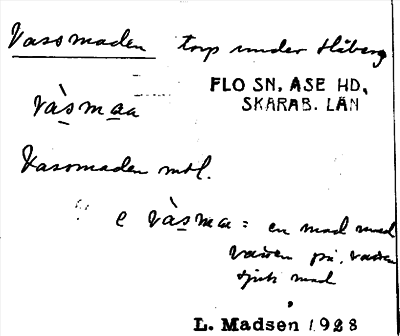 Vassmaden torp under Håberg
FLO SN, ÅSE HD,
SKARAB. LÄN
vàsmaa
Vassmaden mtl.
e vàsma = en mad med
vassen på, vassen
sjuk mad
L. Madsen 1928